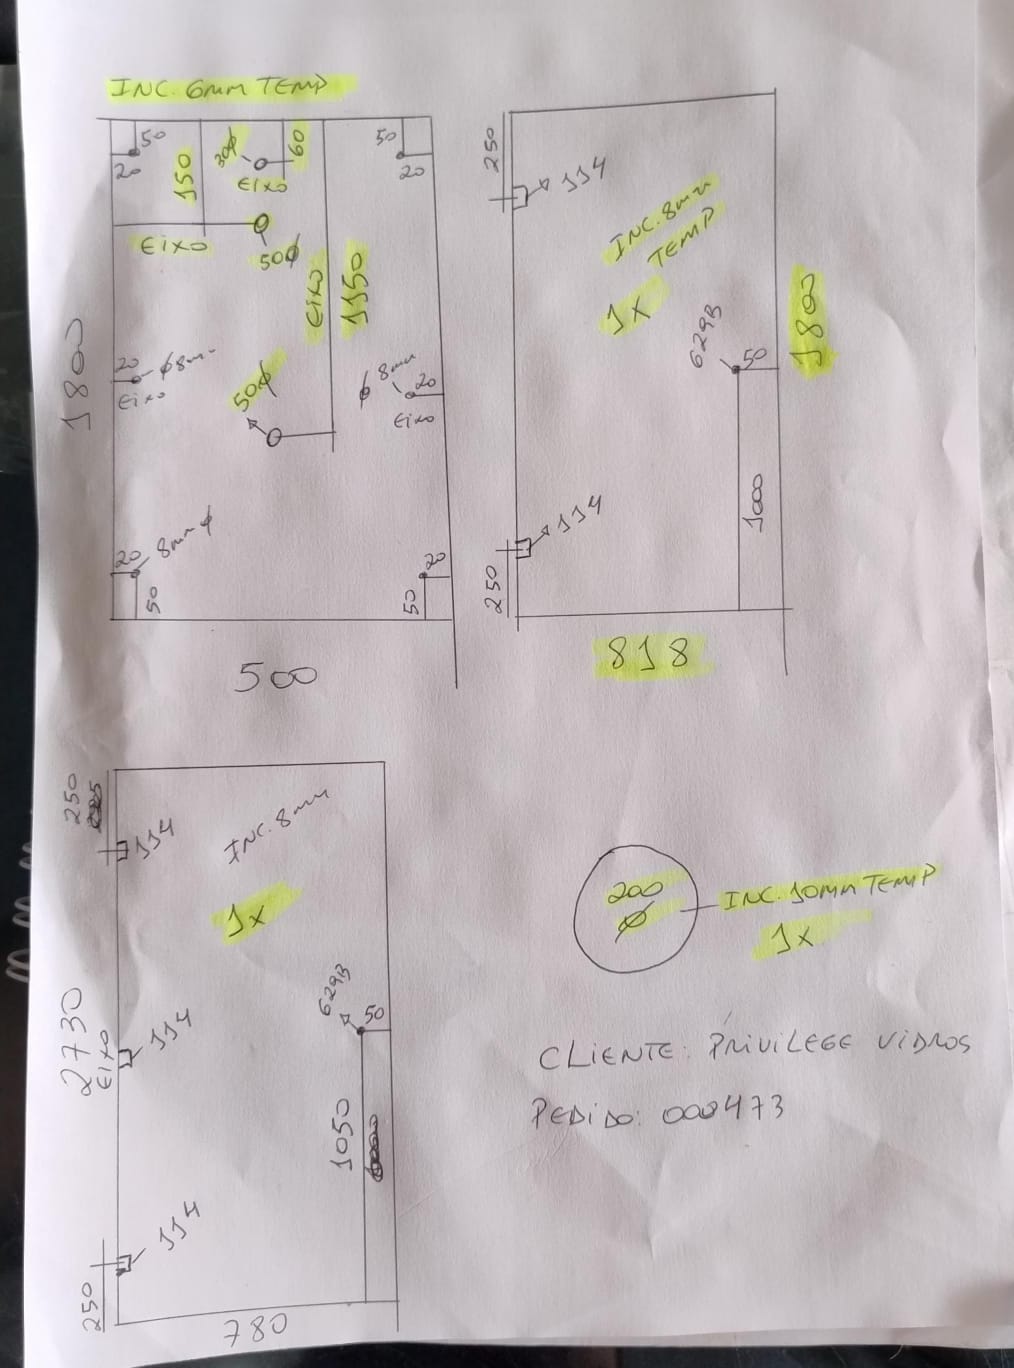 INC. 6mm TEMP
50
20
150
30ϕ
60
EIXO
50
20
EIXO
50ϕ
EIXO
1150
1800
20
ϕ8mm
EIXO
50ϕ
ϕ 8mm
20
EIXO
20
8mm ϕ
50
20
50
500
250
114
INC. 8mm
TEMP
1x
1800
629B
50
1000
114
250
818
250
114
INC. 8mm
1x
2730
EIXO
114
629B
50
1050
114
250
780
200
ϕ
INC. 10mm TEMP
1x
CLIENTE: PRIVILEGE VIDROS
PEDIDO: 000473